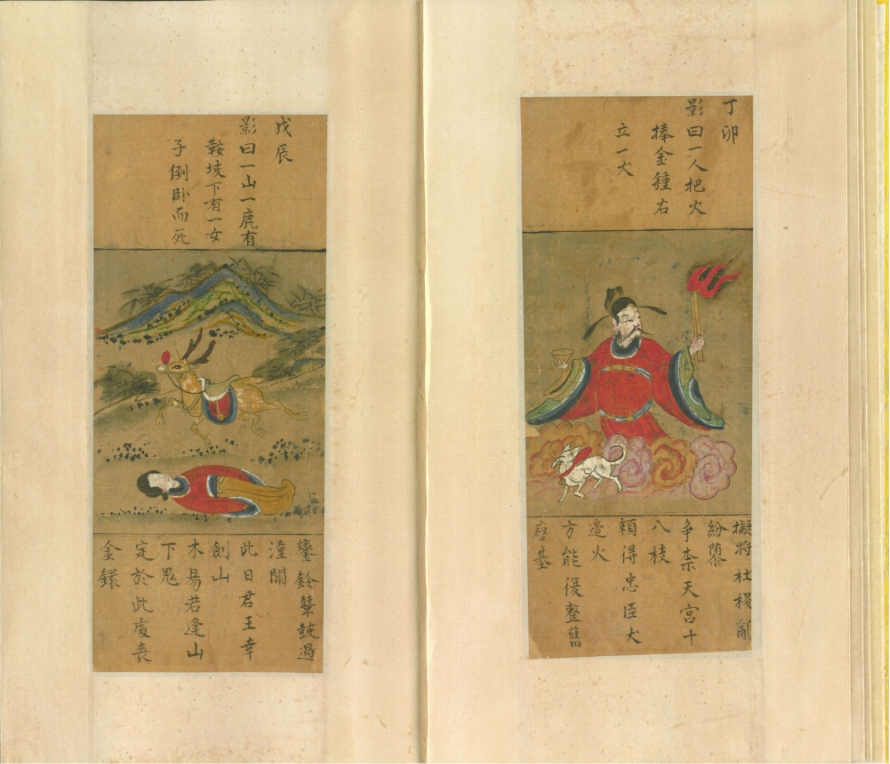 丁卯
影曰一人把火
捧金鍾右
立一犬
擬將社稷亂
紛黎
爭柰天宮十
八枝
賴得忠臣犬
邊火
方能復整舊
唐基
戊辰
影曰一山一鹿有
鞍坡下有一女
子倒卧而死
鑾鈴鼙鼓過
潼關
此日君王幸
劍山
木易若逢山
下鬼
定於此處喪
金鐶